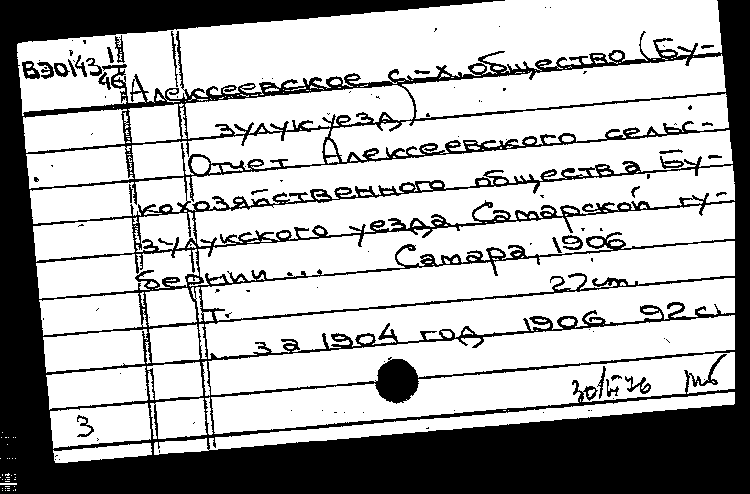 ВЭ0143 1/46
Алексеевское с.-х. общество (Бу-
зулук. уезд).
Отчет Алексеевского сельс-
кохозяйственного общества, Бу-
зулукского уезда, Самарской гу-
бернии ... Самара, 1906.
27 cm.
т.
... за 1904 год 1906. 92 с.
3